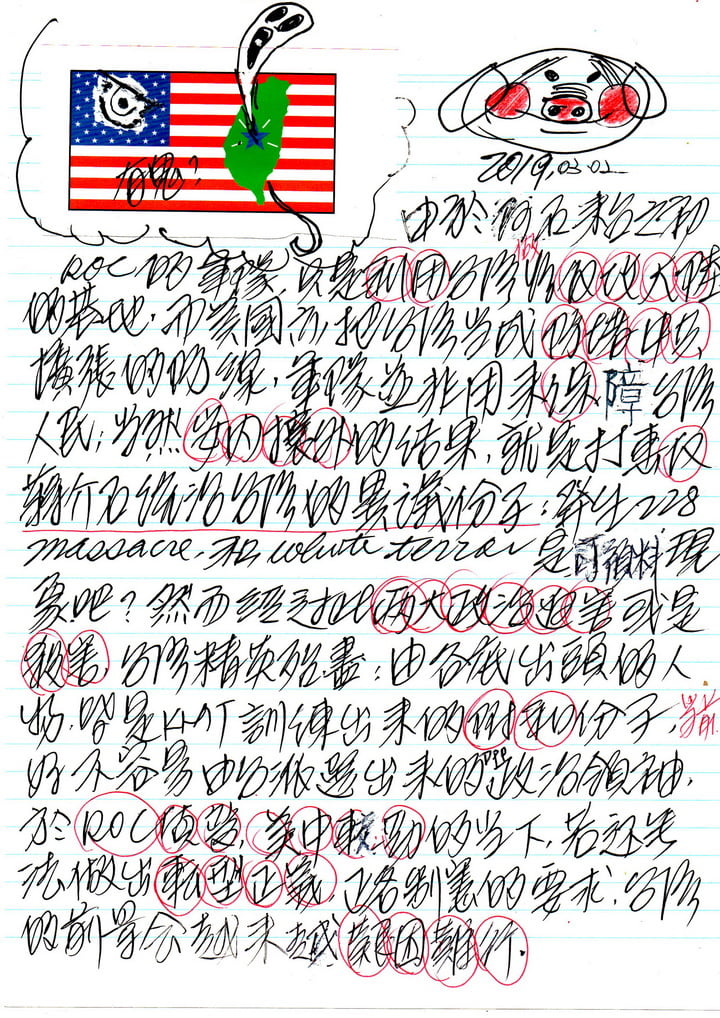 有鬼?
2019.03.02
由於蔣介石來台之初
ROC的軍隊,只是利用台灣做收復大陸
的基地,而美國亦把台灣當成防堵中共
擴張的防線,軍隊並非用來保障台灣
人民;當然安內攘外的結果,就是打擊
蔣介石統治台灣的異議份子;發生228
massacre,和white terror是可預料現
象吧?然而經過此兩大政治迫害或是
殺害,台灣精英殆盡;由台派出頭的人
物,皆是KMT訓練出來的附和份子,當前
好不容易由台派選出來的DPP政治領袖,
於ROC 美中較勁的當下,若還無
法做出轉型正義,正名制憲的要求,台灣
的前景會越來越艱困難行.